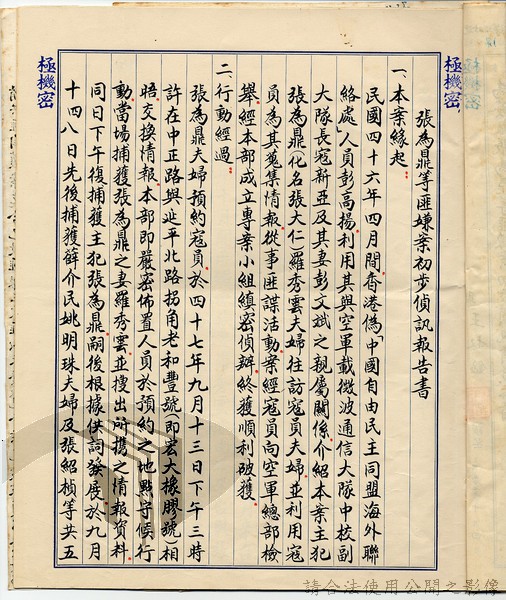 極機密
張為鼎等匪嫌案初步偵訊報告書
一、本案緣起：
民國四十六年四月間，香港偽「中國自由民主同盟海外聯
絡處」人員彭高揚利用其與空軍載微波通信大隊中校副
大隊長寇新亞及其妻彭文斌之親屬關係介紹本案主犯
張為鼎（化名張大仁）羅秀雲夫婦往訪寇員夫婦，並利用寇
員為其蒐集情報，從事匪諜活動，案經寇員向空軍總部檢
舉，經本部成立專案小組縝密偵辦，終獲順利破獲。
二、行動經過：
張為鼎夫婦預約寇員於四十七年九月十三日下午三時
許在中正路與延平北路拐角老和豐號（即宏大橡膠號）相
晤，交換情報，本部即嚴密佈置人員於預約之地點守候，行
動當場捕獲張為鼎之妻羅秀雲，並搜出所携之情報資料，
同日下午復捕獲主犯張為鼎，嗣後根據供詞發展，於九月
十四八日先後捕獲薛介民姚明珠夫婦及張紹楨等共五
極機密
請合法使用公開之影像